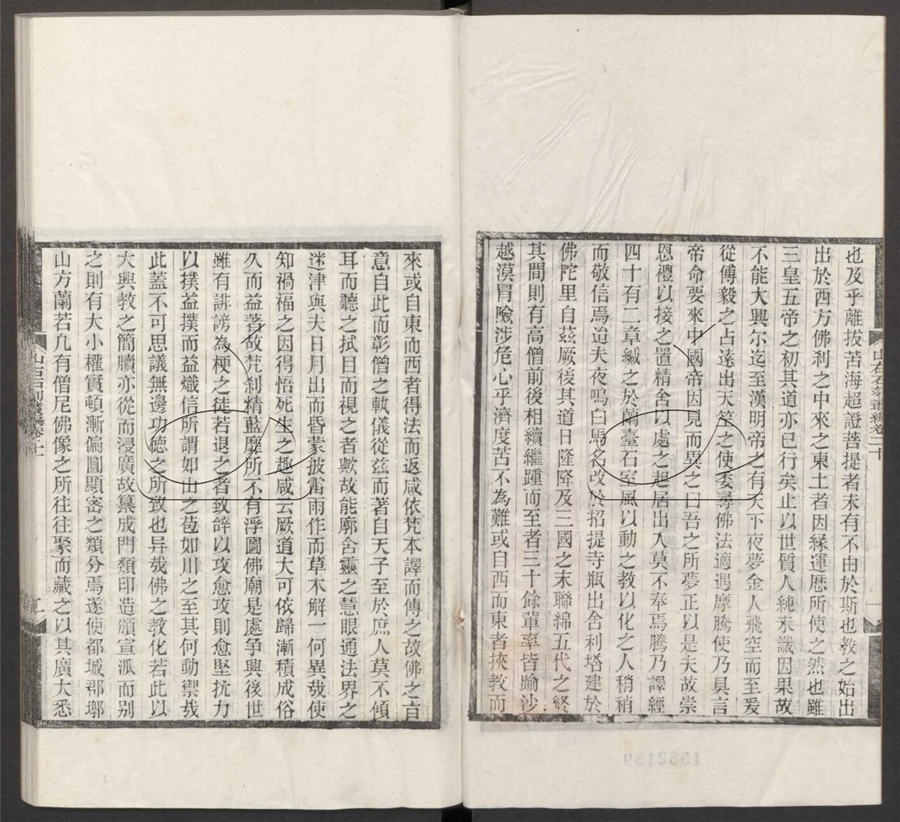 也及乎離拔苦海超證菩提者未有不由於斯也教之始出
出於西方佛刹之中來之東土者因緣運歷所使之然也雖
三皇五帝之初其道亦已行矣止以世質人純未識因果故
不能大興尔迄至漢明帝之有天下夜夢金人飛空而至爰
從傅毅之占遠出天竺之使委尋佛法適遇摩騰使乃具言
帝命要來中國帝因見而異之曰吾之所夢正以是夫故崇
恩禮以接之置精舍以處之起居出入莫不奉焉騰乃譯經
四十有二章緘之於蘭臺石室風以動之教以化之人稍稍
而敬信焉迨夫夜鳴白馬名改於招提寺瓶出舍利塔建於
佛陀里自茲厥後其道日隆降及三國之末聯綿五代之終
其間則有高僧前後相續繼踵而至者三十餘輩率皆踰沙
越漠冒險涉危心乎濟度苦不為難或自西而東者挾教而
來或自東而西者得法而返咸依梵本譯而傳之故佛之言
意自此而彰僧之軌儀從茲而著自天子至於庶人莫不傾
耳而聽之拭目而視之者歟故能廓舍靈之慧眼通法界之
迷津與夫日月出而昏蒙披雷雨作而草木解一何異哉使
知禍福之因得悟死生之趣咸云厥道大可依歸漸積成俗
久而益著故梵刹精藍靡所不有浮圖佛廟是處争興後世
雖有誹謗為梗之徒若退之者致辭以攻愈攻則愈堅抗力
以撲益撲而益熾信所謂如山之苞如川之至其何動禦哉
此蓋不可思議無邊功德之所致也异哉佛之教化若此以
大興教之簡牘亦從而浸廣故纂成門類印造頒宣派而别
之則有大小權實頓漸偏圓顯密之類分焉遂使都城郡鄉
山方蘭若凡有僧尼佛像之所往往聚而藏之以其廣大悉